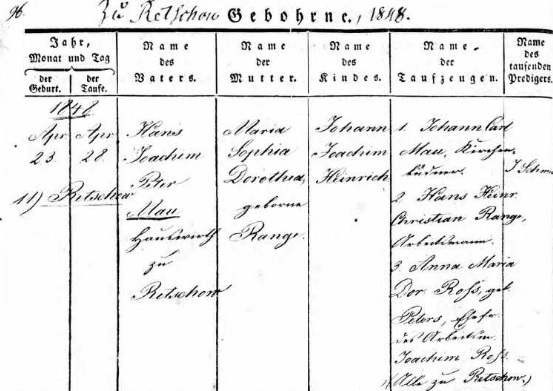 96. Zu Retschow Gebohrne, 1848.
Jahr,
Monat und Tag
der Geburt.
der Taufe.
Name des Vaters.
Name der Mutter.
Name des Kindes.
Name der Taufzeugen.
Name des taufenden Predigers.
1848
Apr 23.
Apr 28
11) Retschow
Hans
Joachim
Peter
Mau
Hauswirth
zu
Retschow
Maria
Sophia
Dorothea,
geborne
Range.
Johann
Joachim
Heinrich
1. Johann Carl
Mau, Kirchen
büdner.
2 Hans Heinr
Christian Range,
Arbeitsmann.
3. Anna Maria
Dor. Ross, geb.
Peters, Ehefr
des Arbeitsm.
Joachim Ross.
(Alle zu Retschow.)